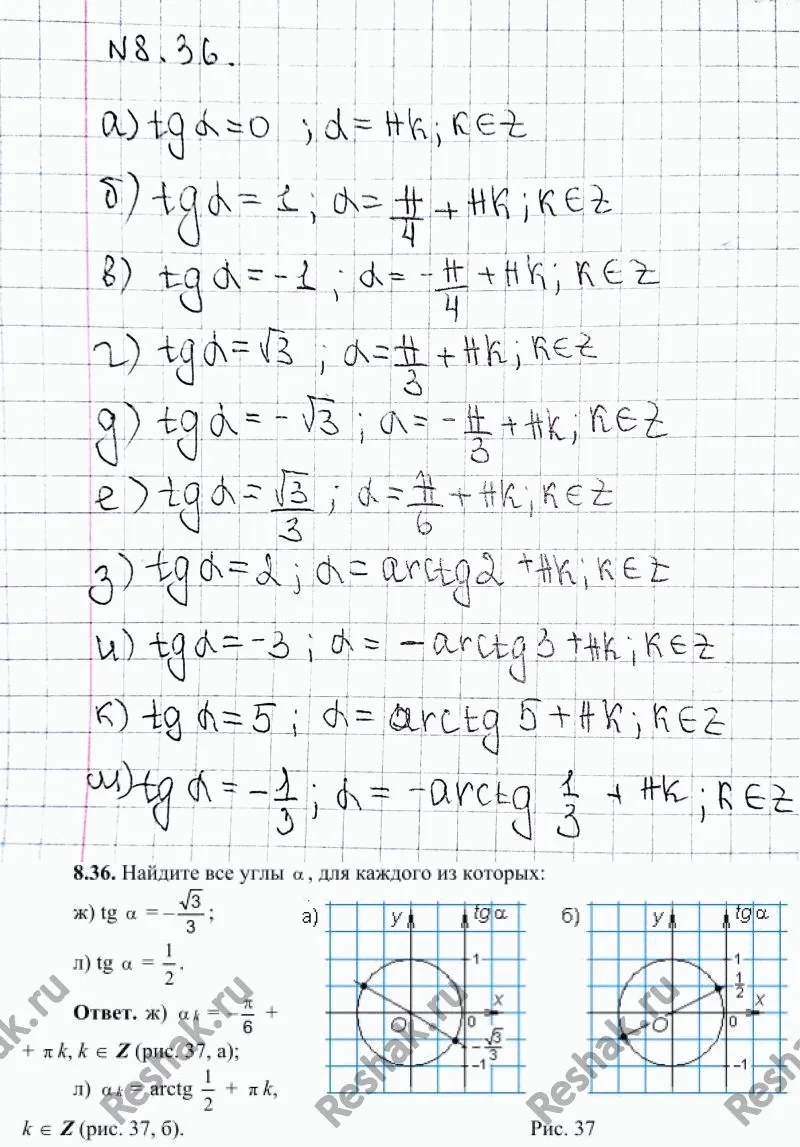 N8.36.
а) tg α = 0 ; α = πk; k ∈ Z
б) tg α = 1; α = π/4 + πk; k ∈ Z
в) tg α = -1; α = -π/4 + πk; k ∈ Z
г) tg α = √3 ; α = π/3 + πk; k ∈ Z
д) tg α = -√3 ; α = -π/3 + πk; k ∈ Z
е) tg α = √3/3 ; α = π/6 + πk; k ∈ Z
з) tg α = 2; α = arctg 2 + πk; k ∈ Z
и) tg α = -3; α = -arctg 3 + πk; k ∈ Z
к) tg α = 5; α = arctg 5 + πk; k ∈ Z
м) tg α = -1/3; α = -arctg 1/3 + πk; k ∈ Z
8.36. Найдите все углы α, для каждого из которых:
ж) tg α = -√3/3;
л) tg α = 1/2.
Ответ. ж) αk = -π/6 +
+ πk, k ∈ Z (рис. 37, а);
л) αk = arctg 1/2 + πk,
k ∈ Z (рис. 37, б).
а) y tg α
1
x
O 0
-√3/3
-1
б) y tg α
1
1/2
x
O 0
-1
Рис. 37
Reshak.ru
Reshak.ru
Reshak.ru
Reshak.ru